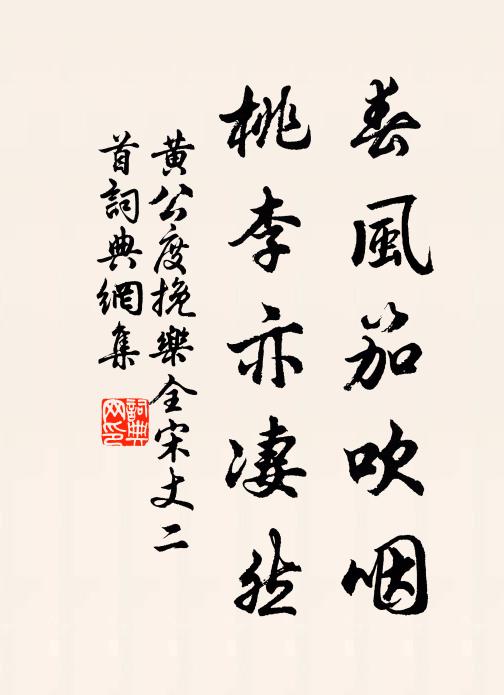 春風笳吹咽
桃李亦淒然
黃公度挽樂全宋丈二
首詞典網集
詞典
网印